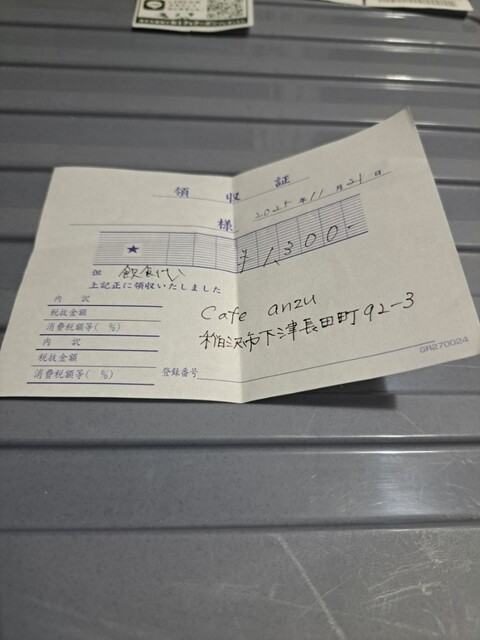 領 収 証
2025 年 11 月 21 日
様
★ ¥1,300-
但 飲食代
上記正に領収いたしました
内 訳
税抜金額
消費税額等( %)
内 訳
税抜金額
消費税額等( %)
登録番号
Cafe anzu
稲沢市下津長田町92-3
GR270024